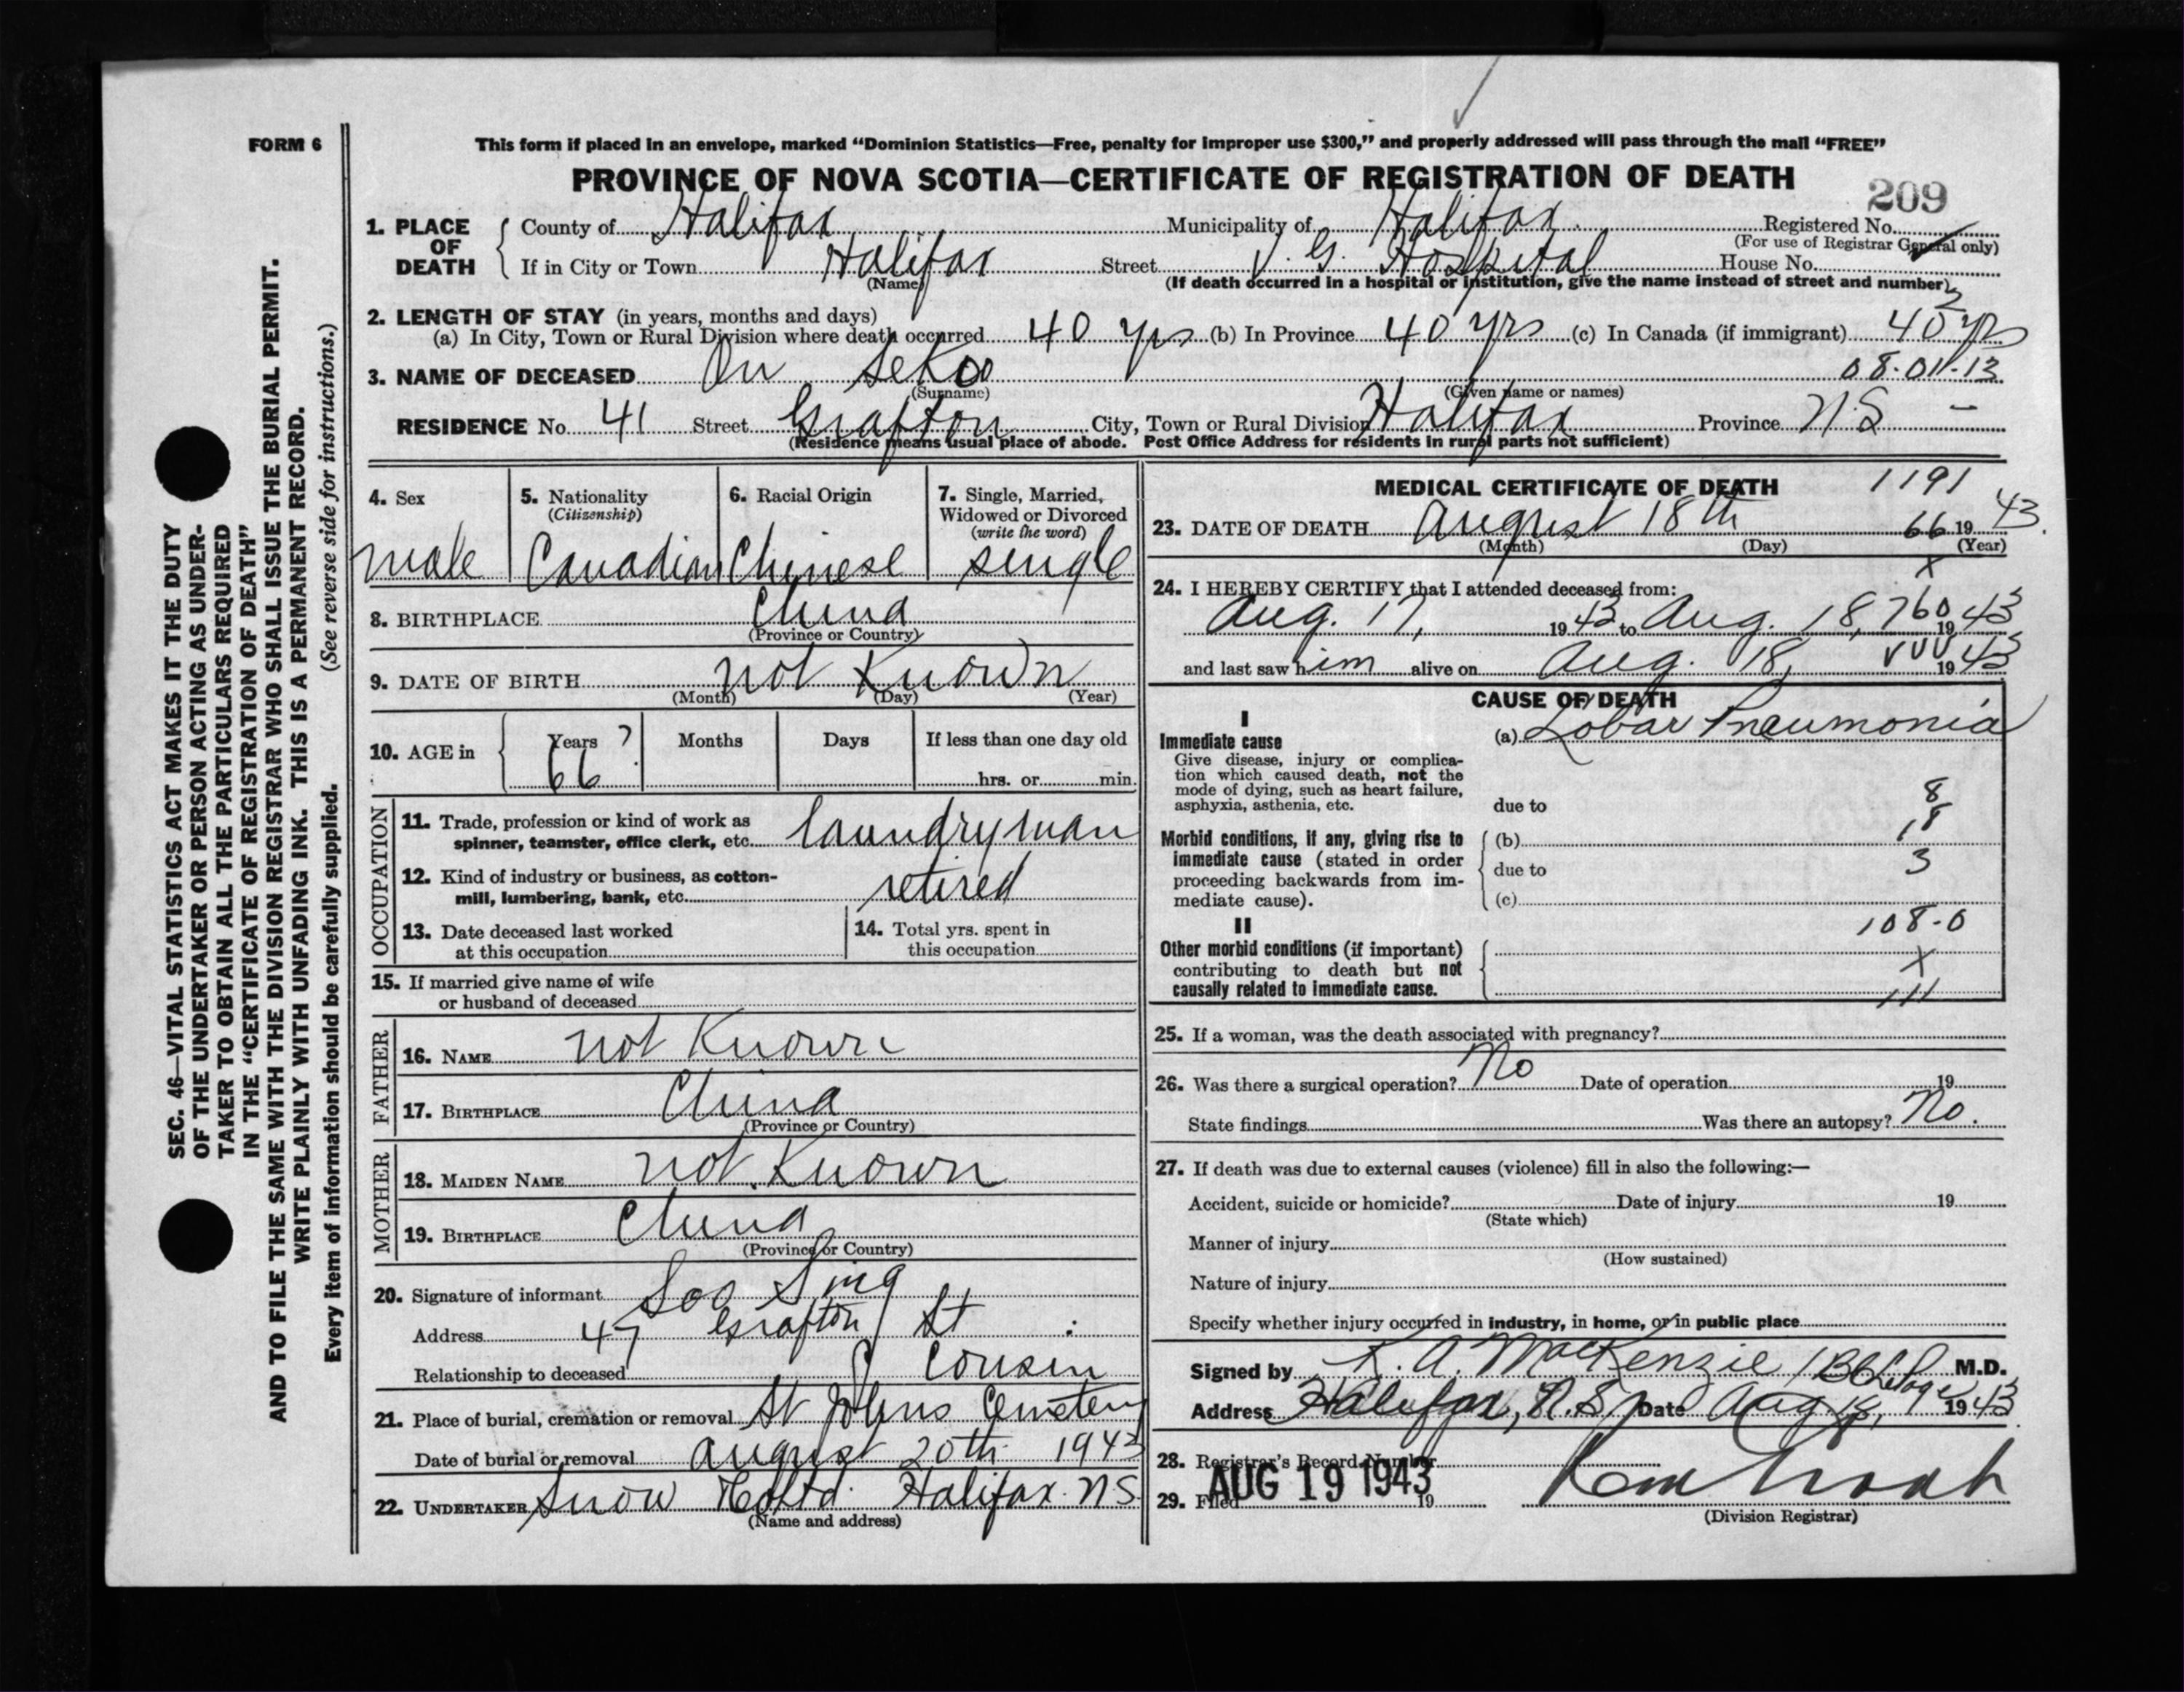 FORM 6
This form if placed in an envelope, marked “Dominion Statistics—Free, penalty for improper use $300,” and properly addressed will pass through the mail “FREE”
PROVINCE OF NOVA SCOTIA—CERTIFICATE OF REGISTRATION OF DEATH
209
1. PLACE OF DEATH
County of Halifax Municipality of Halifax. Registered No.
(For use of Registrar General only)
If in City or Town Halifax Street V. G. Hospital House No.
(Name) (If death occurred in a hospital or institution, give the name instead of street and number)
2. LENGTH OF STAY (in years, months and days)
(a) In City, Town or Rural Division where death occurred 40 yrs (b) In Province 40 yrs (c) In Canada (if immigrant) 40 yrs
3. NAME OF DECEASED On Sekoo 08-011-13
(Surname) (Given name or names)
RESIDENCE No. 41 Street Grafton City, Town or Rural Division Halifax Province N.S —
(Residence means usual place of abode. Post Office Address for residents in rural parts not sufficient)
4. Sex
male
5. Nationality
(Citizenship)
Canadian
6. Racial Origin
Chinese
7. Single, Married,
Widowed or Divorced
(write the word)
single
8. BIRTHPLACE China
(Province or Country)
9. DATE OF BIRTH not Known
(Month) (Day) (Year)
10. AGE in
Years ? Months Days If less than one day old
66 hrs. or min.
OCCUPATION
11. Trade, profession or kind of work as
spinner, teamster, office clerk, etc. laundryman
12. Kind of industry or business, as cotton-
mill, lumbering, bank, etc. retired
13. Date deceased last worked
at this occupation
14. Total yrs. spent in
this occupation
15. If married give name of wife
or husband of deceased
FATHER
16. NAME not Known
17. BIRTHPLACE China
(Province or Country)
MOTHER
18. MAIDEN NAME not Known
19. BIRTHPLACE China
(Province or Country)
20. Signature of informant Soo Sing
Address 47 Grafton St
Relationship to deceased Cousin
21. Place of burial, cremation or removal St Johns Cemetery
Date of burial or removal August 20th 1943
22. UNDERTAKER Snow & Co Ltd. Halifax N S.
(Name and address)
MEDICAL CERTIFICATE OF DEATH 1191
23. DATE OF DEATH August 18th 66 19 43.
(Month) (Day) (Year)
x
24. I HEREBY CERTIFY that I attended deceased from:
Aug. 17, 19 43 to Aug. 18, 760 19 43
and last saw him alive on Aug. 18, 19 43
CAUSE OF DEATH
I
Immediate cause (a) Lobar Pneumonia
Give disease, injury or complica-
tion which caused death, not the
mode of dying, such as heart failure,
asphyxia, asthenia, etc. due to 8
18
Morbid conditions, if any, giving rise to (b)
immediate cause (stated in order
proceeding backwards from im- due to 3
mediate cause). (c)
II 108-0
Other morbid conditions (if important)
contributing to death but not x
causally related to immediate cause. 111
25. If a woman, was the death associated with pregnancy?
26. Was there a surgical operation? No Date of operation 19
State findings Was there an autopsy? No.
27. If death was due to external causes (violence) fill in also the following:—
Accident, suicide or homicide? Date of injury 19
(State which)
Manner of injury
(How sustained)
Nature of injury
Specify whether injury occurred in industry, in home, or in public place
Signed by K. A. MacKenzie M.D.
Address Halifax, N.S. Date Aug 18, 19 43
28. Registrar's Record Number
29. Filed AUG 19 1943 19
(Division Registrar)
SEC. 46—VITAL STATISTICS ACT MAKES IT THE DUTY
OF THE UNDERTAKER OR PERSON ACTING AS UNDER-
TAKER TO OBTAIN ALL THE PARTICULARS REQUIRED
IN THE “CERTIFICATE OF REGISTRATION OF DEATH”
AND TO FILE THE SAME WITH THE DIVISION REGISTRAR WHO SHALL ISSUE THE BURIAL PERMIT.
WRITE PLAINLY WITH UNFADING INK. THIS IS A PERMANENT RECORD.
Every item of information should be carefully supplied. (See reverse side for instructions.)